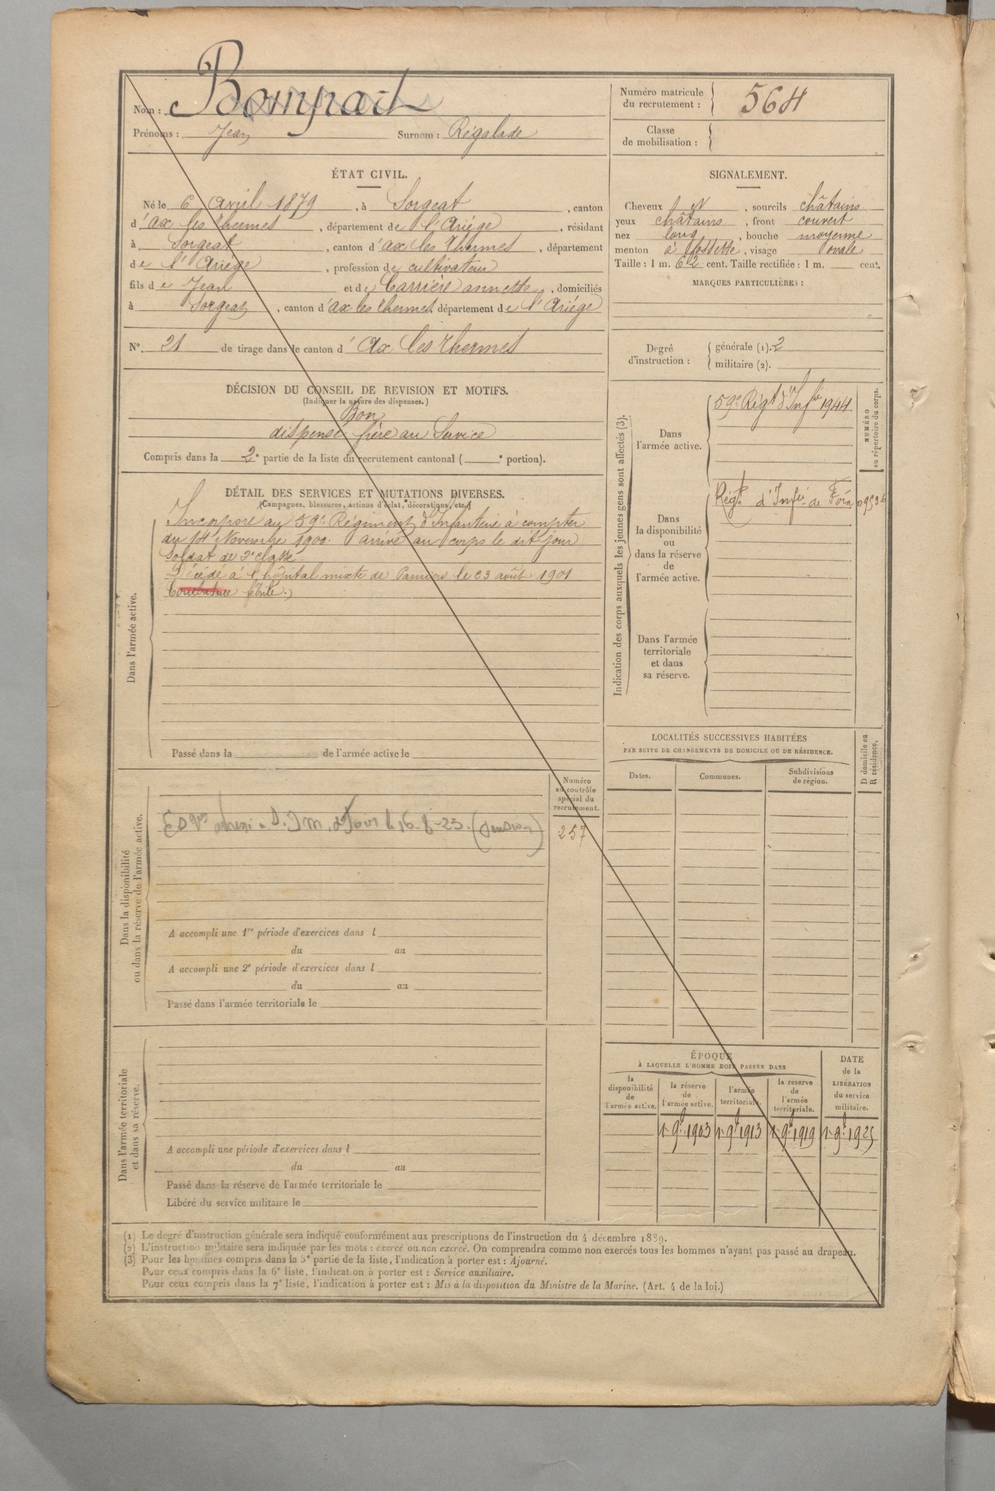 Nom : Bompart
Prénoms : Jean Surnom : Régalade
Numéro matricule du recrutement : 564
Classe de mobilisation :
ÉTAT CIVIL.
Né le 6 avril 1879, à Sorgeat, canton
d'ax les thermes, département de l'Ariège, résidant
à Sorgeat, canton d'ax les thermes, département
de l'Ariège, profession de cultivateur
fils de Jean et de Carrière annette, domiciliés
à Sorgeat, canton d'ax les thermes, département de l'Ariège
N° 21 de tirage dans le canton d'Ax les thermes
SIGNALEMENT.
Cheveux, sourcils châtains
yeux châtains, front couvert
nez long, bouche moyenne
menton à fossette, visage ovale
Taille : 1 m. 62 cent. Taille rectifiée : 1 m. cent.
MARQUES PARTICULIÈRES :
Degré d'instruction : générale (1). 2
militaire (2).
DÉCISION DU CONSEIL DE REVISION ET MOTIFS.
(Indiquer la nature des dispenses.)
Bon
dispensé frère au Service
Compris dans la 2e partie de la liste du recrutement cantonal ( e portion).
DÉTAIL DES SERVICES ET MUTATIONS DIVERSES.
(Campagnes, blessures, actions d'éclat, décorations, etc.)
Dans l'armée active.
Incorporé au 59e Régiment d'Infanterie à compter
du 14 Novembre 1900. arrivé au corps le dit jour
soldat de 2e classe
Décédé à l'hôpital mixte de Pamiers le 23 août 1901
Passé dans la de l'armée active le
Indication des corps auxquels les jeunes gens sont affectés (3).
NUMÉRO au répertoire du corps.
Dans l'armée active.
59e Régt d'Infie 1944
Dans la disponibilité ou dans la réserve de l'armée active.
Régt d'Infie de Foix
Dans l'armée territoriale et dans sa réserve.
LOCALITÉS SUCCESSIVES HABITÉES
PAR SUITE DE CHANGEMENTS DE DOMICILE OU DE RÉSIDENCE.
D domicile ou R résidence.
Dates. Communes. Subdivisions de région.
Numéro au contrôle spécial du recrutement.
257
Dans la disponibilité ou dans la réserve de l'armée active.
A accompli une 1re période d'exercices dans l
du au
A accompli une 2e période d'exercices dans l
du au
Passé dans l'armée territoriale le
Dans l'armée territoriale et dans sa réserve.
A accompli une période d'exercices dans l
du au
Passé dans la réserve de l'armée territoriale le
Libéré du service militaire le
ÉPOQUE
À LAQUELLE L'HOMME DOIT PASSER DANS
la disponibilité de l'armée active.
la réserve de l'armée active.
l'armée territoriale.
la réserve de l'armée territoriale.
DATE de la LIBÉRATION du service militaire.
1r 9bre 1903 1r 9bre 1913 1r 9bre 1919 1r 9bre 1925
(1) Le degré d'instruction générale sera indiqué conformément aux prescriptions de l'instruction du 4 décembre 1889.
(2) L'instruction militaire sera indiquée par les mots : exercé ou non exercé. On comprendra comme non exercés tous les hommes n'ayant pas passé au drapeau.
(3) Pour les hommes compris dans la 5e partie de la liste, l'indication à porter est : Ajourné.
Pour ceux compris dans la 6e liste, l'indication à porter est : Service auxiliaire.
Pour ceux compris dans la 7e liste, l'indication à porter est : Mis à la disposition du Ministre de la Marine. (Art. 4 de la loi.)